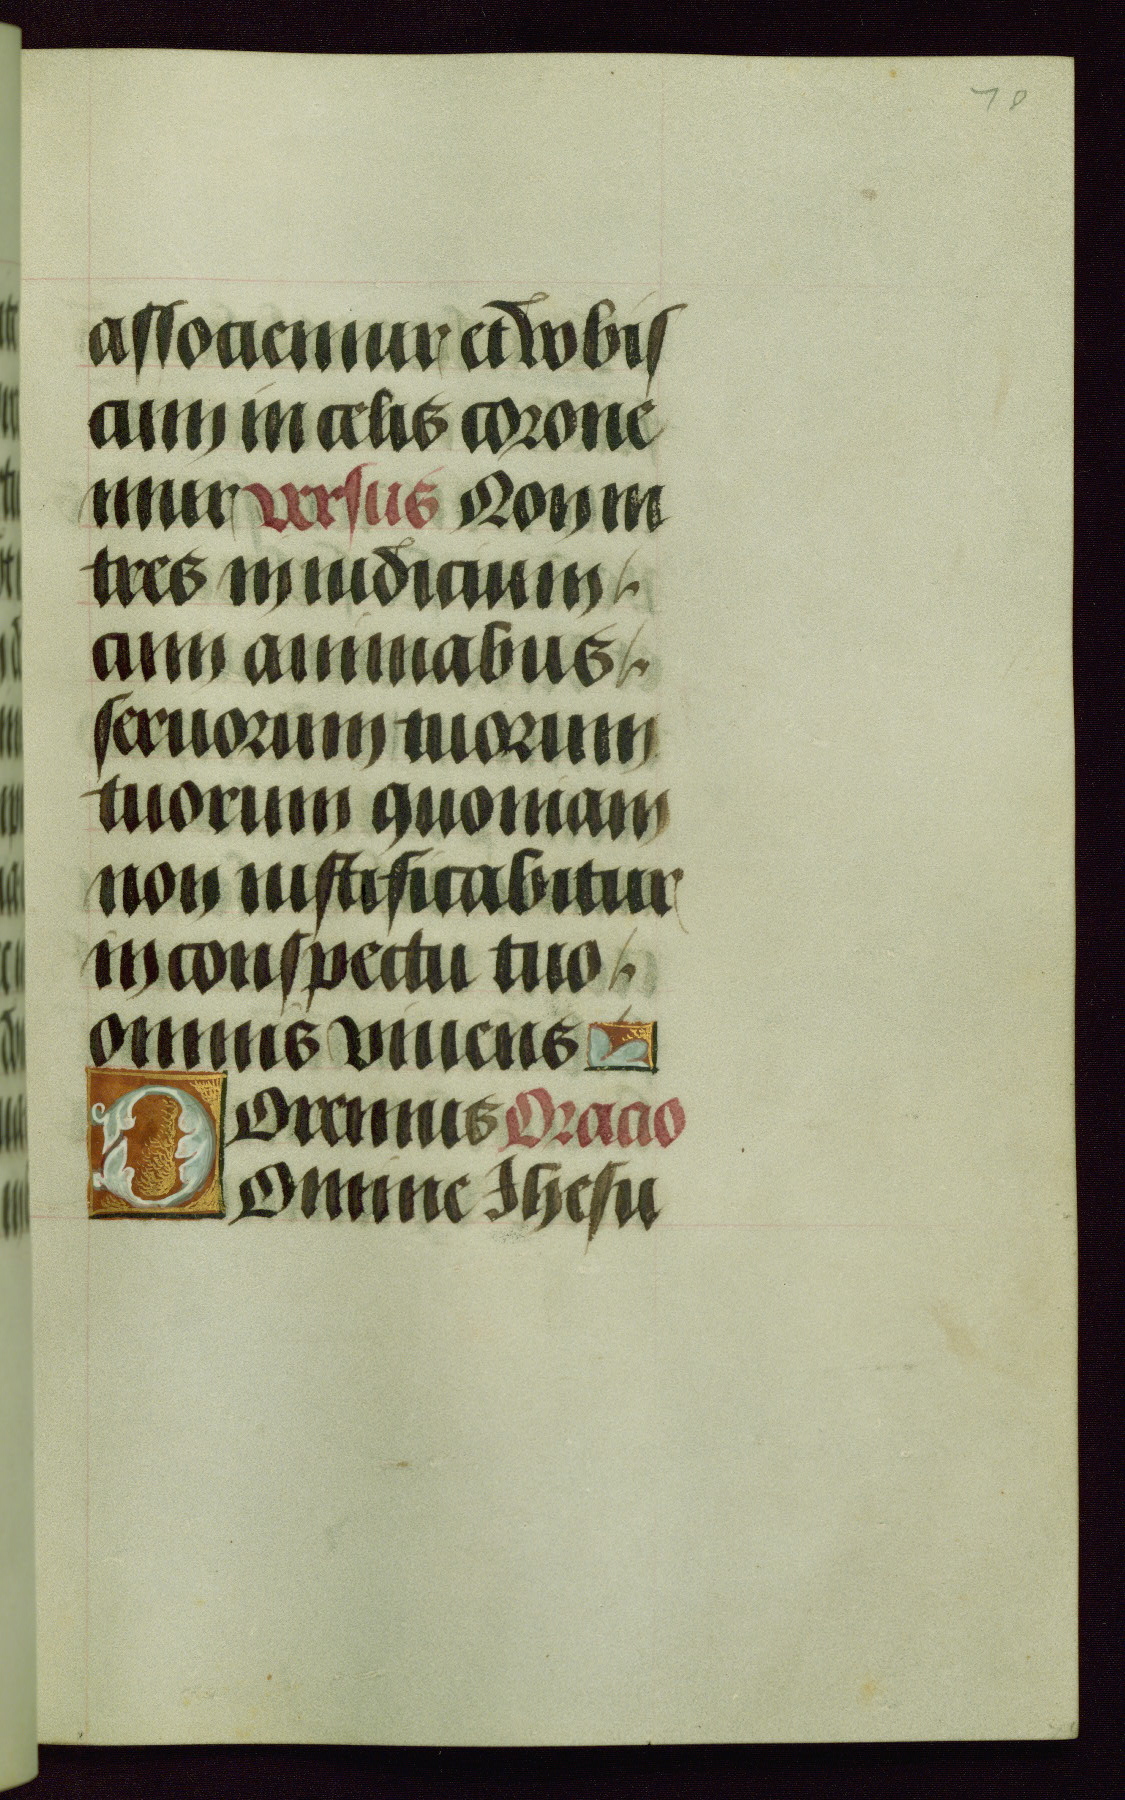 78
associemur et vobis
cum in celis corone
mur versus Non in
tres in iudicium
cum animabus
seruorum tuorum
tuorum quoniam
non iustificabitur
in conspectu tuo
omnis viuens
Oremus Oracio
Domine Jhesu